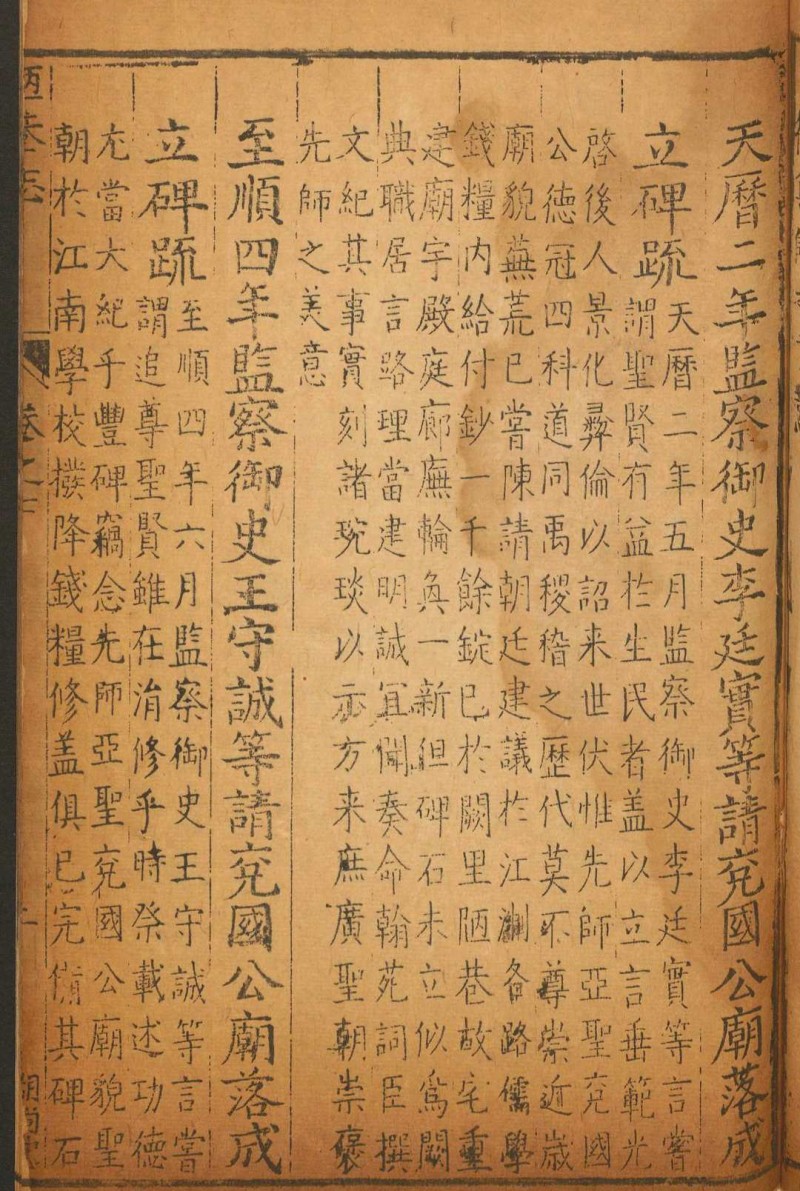 天曆二年監察御史李廷實等請兖國公廟落成
立碑疏
天曆二年五月監察御史李廷實等言嘗
謂聖賢有益於生民者盖以立言垂範光
啓後人景化彛倫以詔来世伏惟先師亞聖兖國
公德冠四科道同禹稷稽之歷代莫不尊崇近嵗
廟貌蕪荒已嘗陳請朝廷建議於江淛各路儒學
錢糧内給付鈔一千餘錠已於闕里陋巷故宅重
建廟宇殿庭廊廡輪奐一新但碑石未立似爲闕
典職居言路理當建明誠宜聞奏命翰苑詞臣撰
文紀其事實刻諸琬琰以示方来庶廣聖朝崇褒
先師之美意
至順四年監察御史王守誠等請兖國公廟落成
立碑疏
至順四年六月監察御史王守誠等言嘗
謂追尊聖賢雖在洧修乎時祭載述功德
尢當大紀乎豐碑竊念先師亞聖兖國公廟貌聖
朝於江南學校撥降錢糧修盖俱已完備其碑石
陋巷志
卷之